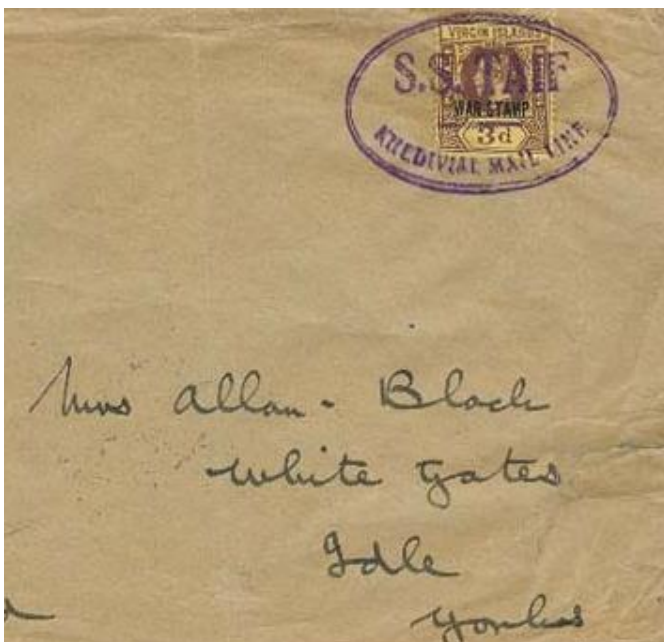 VIRGIN ISLANDS
S.S. TAIF
WAR STAMP
3d
KHEDIVIAL MAIL LINE
Mrs Allan-Black
White Gates
Idle
Yorks